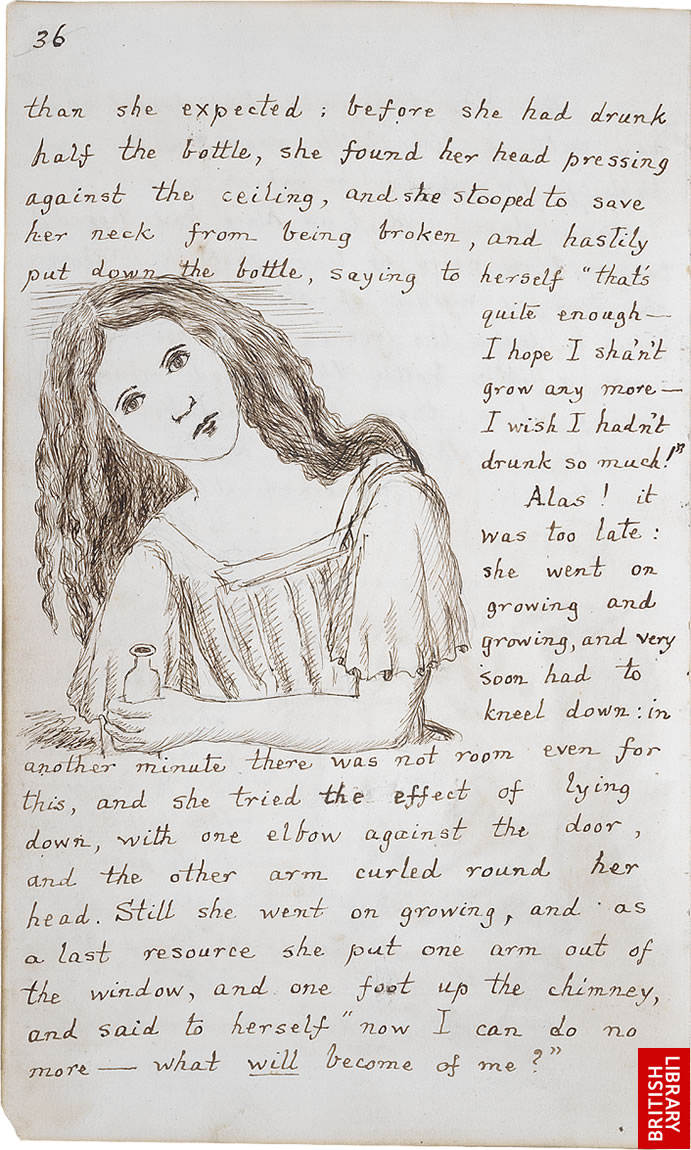 36
than she expected : before she had drunk
half the bottle, she found her head pressing
against the ceiling, and she stooped to save
her neck from being broken, and hastily
put down the bottle, saying to herself "that's
quite enough—
I hope I sha'n't
grow any more—
I wish I hadn't
drunk so much!"
Alas! it
was too late :
she went on
growing and
growing, and very
soon had to
kneel down : in
another minute there was not room even for
this, and she tried the effect of lying
down, with one elbow against the door,
and the other arm curled round her
head. Still she went on growing, and as
a last resource she put one arm out of
the window, and one foot up the chimney,
and said to herself "now I can do no
more — what will become of me?"
BRITISH
LIBRARY